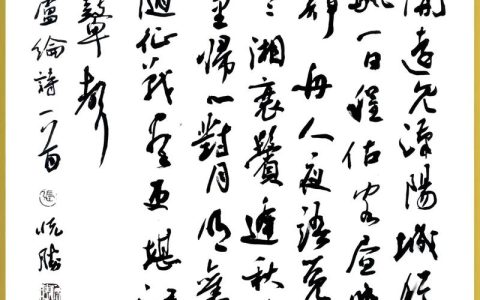 開遠見漢陽城猶
帆一日程估客昼眠
静舟人夜語覺
三湘衰鬢逢秋
里歸心對月明舊
隨征戰盡更堪江
鼙聲
盧綸詩一首